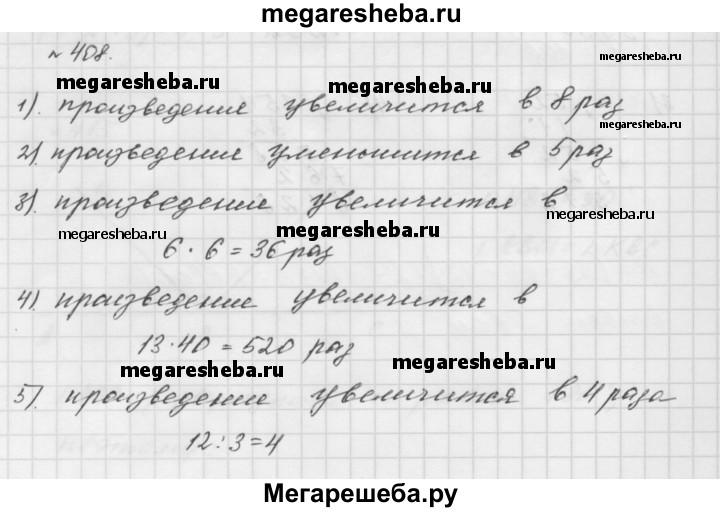 megaresheba.ru
№ 408.
megaresheba.ru
megaresheba.ru
1). произведения увеличится в 8 раз
megaresheba.ru
2). произведение уменьшится в 5 раз
3). произведение увеличится в
megaresheba.ru
megaresheba.ru
megaresheba.ru
6 · 6 = 36 раз
4). произведение увеличится в
13·40 = 520 раз
megaresheba.ru
megaresheba.ru
5). произведение увеличится в 4 раза
12:3=4
Мегарешеба.ру